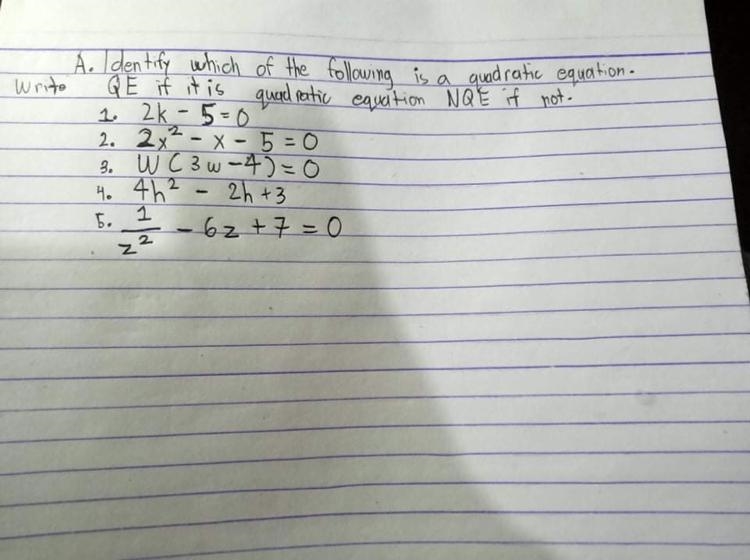 A. Identify which of the following is a quadratic equation.
Write QE if it is quadratic equation NQE if not.
1. 2k - 5 = 0
2. 2x² - x - 5 = 0
3. W(3w - 4) = 0
4. 4h² - 2h + 3
5. 1/z² - 6z + 7 = 0